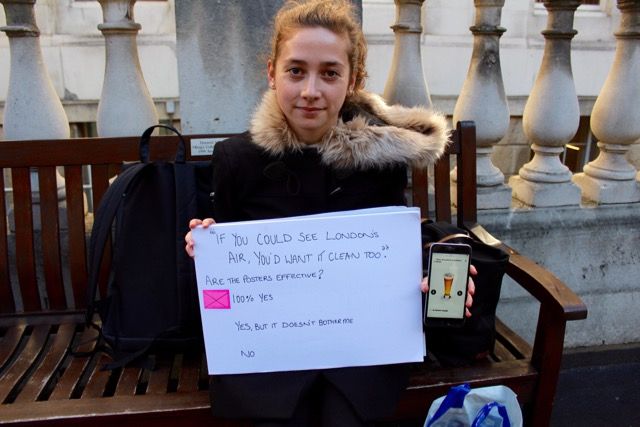 "IF YOU COULD SEE LONDON'S
AIR, YOU'D WANT IT CLEAN TOO".
ARE THE POSTERS EFFECTIVE?
100% YES
YES, BUT IT DOESN'T BOTHER ME
NO